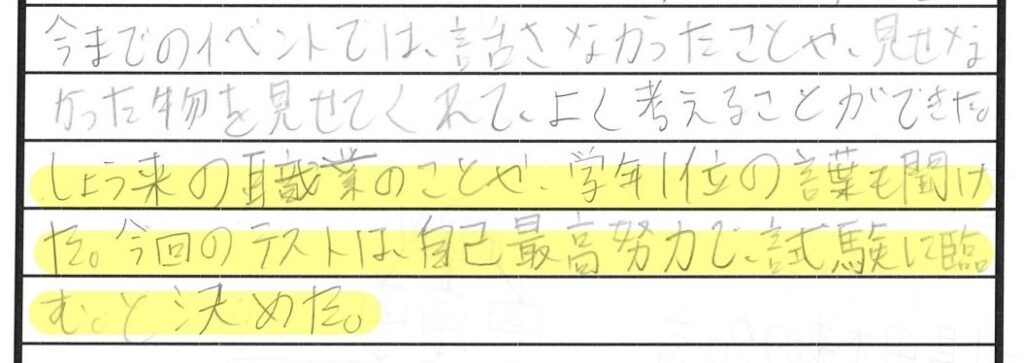 今までのイベントでは、話さなかったことや、見せな
かった物を見せてくれて、よく考えることができた。
しょう来の職業のことや、学年1位の言葉も聞け
た。今回のテストは、自己最高努力で、試験に臨
む。と決めた。